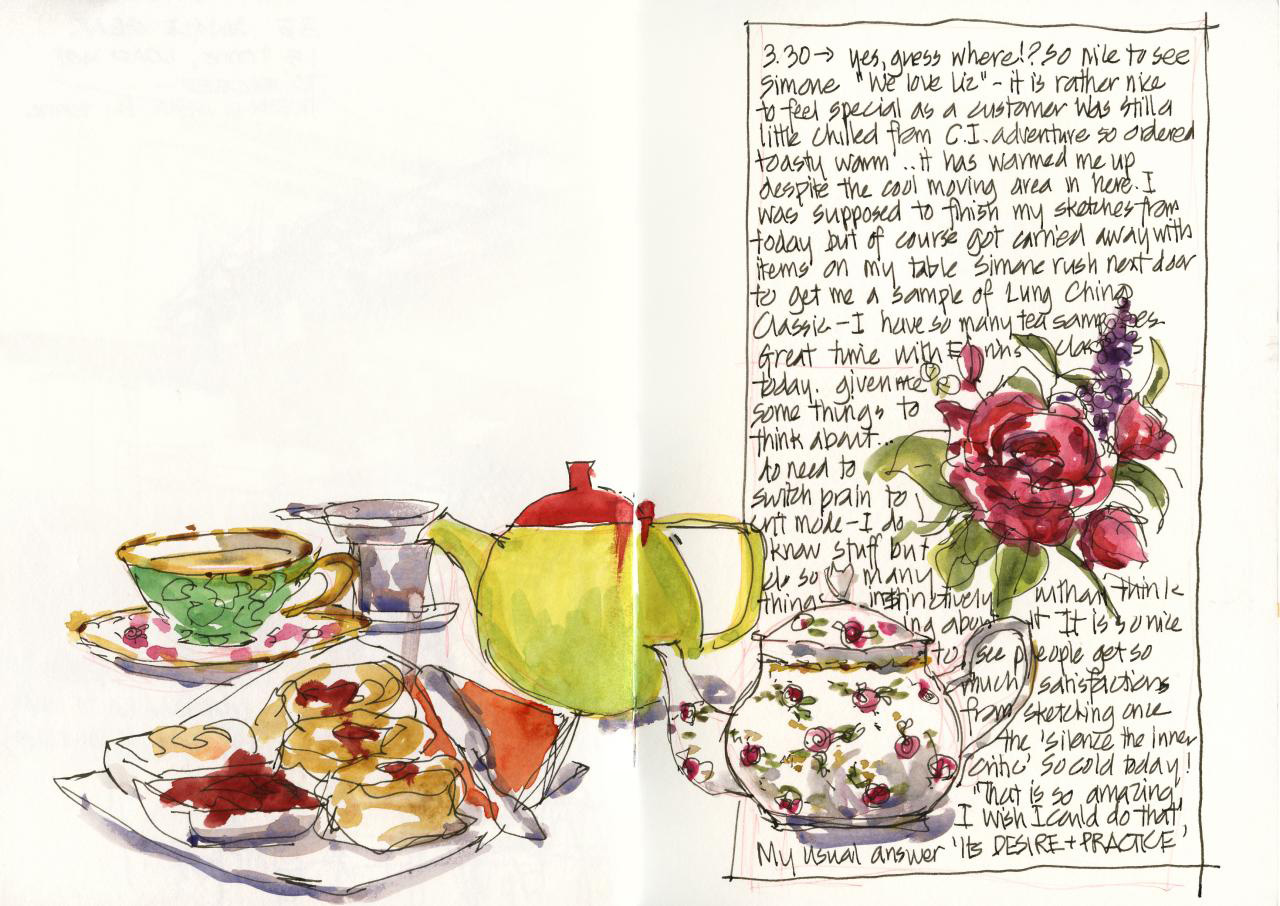 3.30→ yes, guess where!? So nice to see
Simone "We love Liz" - it is rather nice
to feel special as a customer Was still a
little chilled from C.I. adventure so ordered
'toasty warm'.. it has warmed me up
despite the cool moving area in here. I
was supposed to finish my sketches from
today but of course got carried away with
items on my table Simone rush next door
to get me a sample of Lung Ching
Classic - I have so many tea samples
Great time with
today. given me
some things to
think about...
do need to
switch brain to
mode - I do
know stuff but
do so many
things instinctively within think
ing about it It is so nice
to see people get so
much satisfactions
from sketching once
the 'silence the inner
critic' So cold today!
"That is so amazing"
I wish I could do that"
My usual answer 'its DESIRE + PRACTICE'